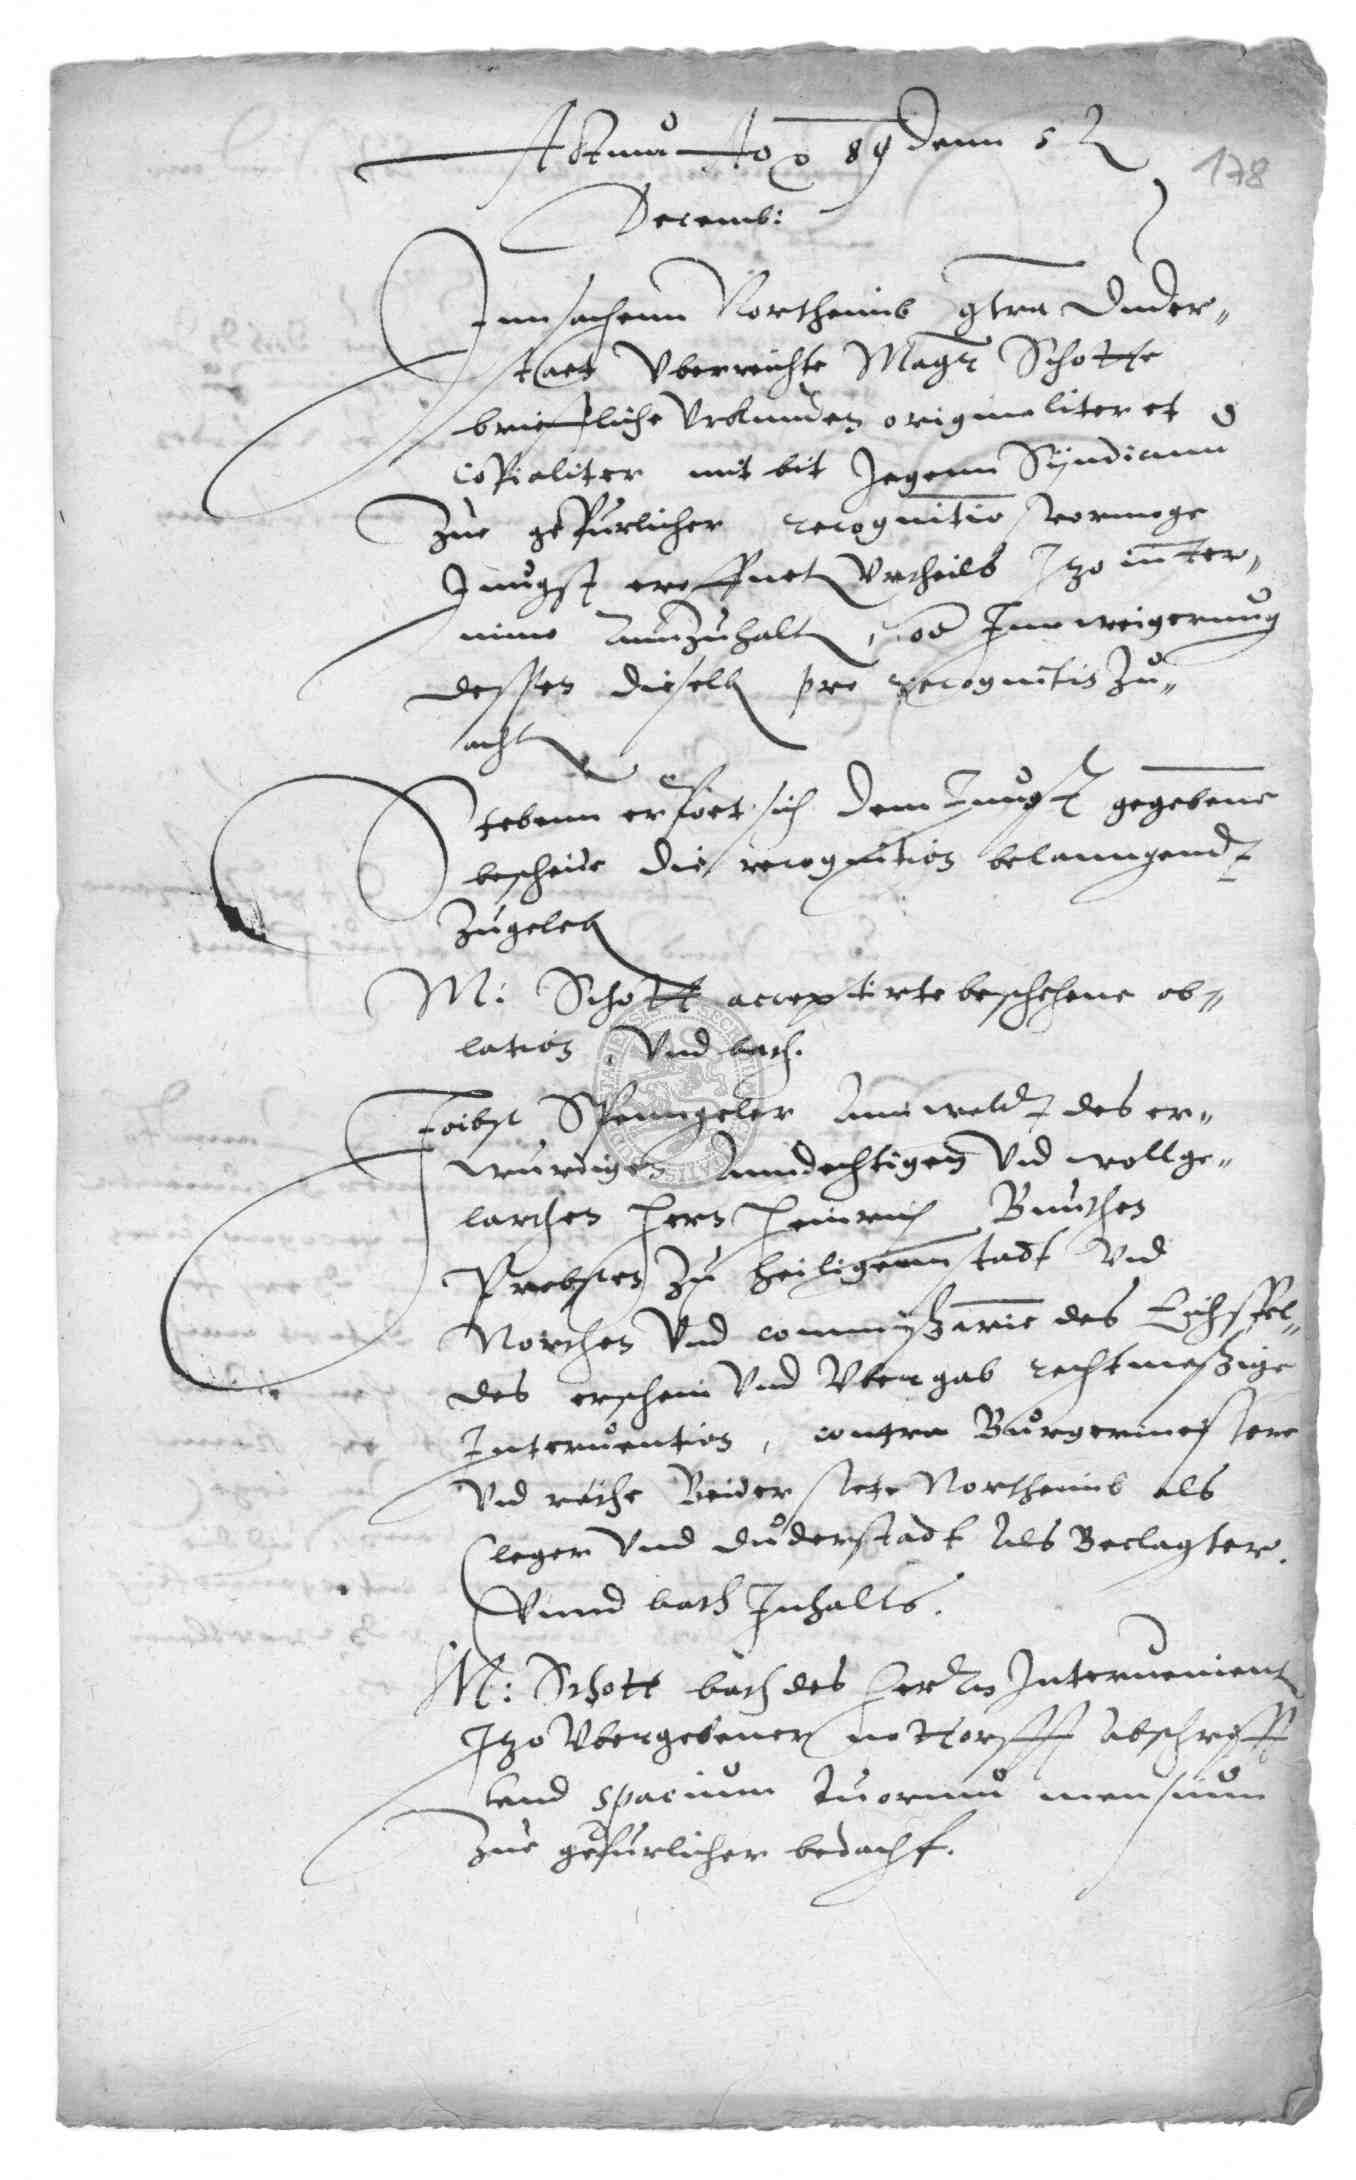 Actum Ao 89 denn 5
178
Decemb:
Inn sachenn Northeimb contra Duder„
staet Vberreichte Magr Schotte
brieffliche Vrkunden originaliter et
Copialiter mit bit Jegenn Syndicum
zue gepurlicher recognitio vormoge
Jungst eroffnet Vrtheils Itzo in ter„
mino Anzuhalt, od Inn weigerung
dessen dieselb pro recognitis zu„
acht
Stebenn erpoet sich dem Jungst gegebene
bescheide die recognition belanngendt
zugeleb
M: Schott acceptirte beschehene ob„
lation, Vnd bath.
Tobst Spenngeler Annweldt des er„
wurdigen Anndechtigen Vnd wollge„
larthen Hern Heinrich Bunthen
Probsten zu Heiligennstadt Vnd
Northen Vnd commissarie des Eichsfel„
des erschein Vnd Vbergab rechtmessige
Interuention, contra Burgermeistere
Vnd räthe Beider stete Northeimb als
Cleger Vnd Duderstadt Als Beclagter.
Vnnd bath Inhalts.
M: Schott bath des Herrn Interuenient
Itzo Vbergebener nottorfft Abschrifft
Vnd spacium duorum mensium
zue gepurlicher bedacht.